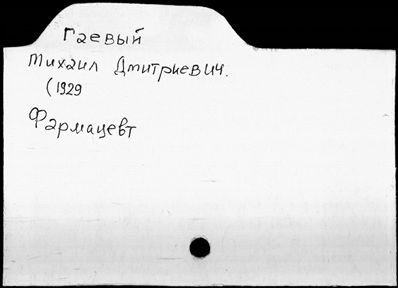 Гаевый
Михаил Дмитриевич.
(1929
Фармацевт